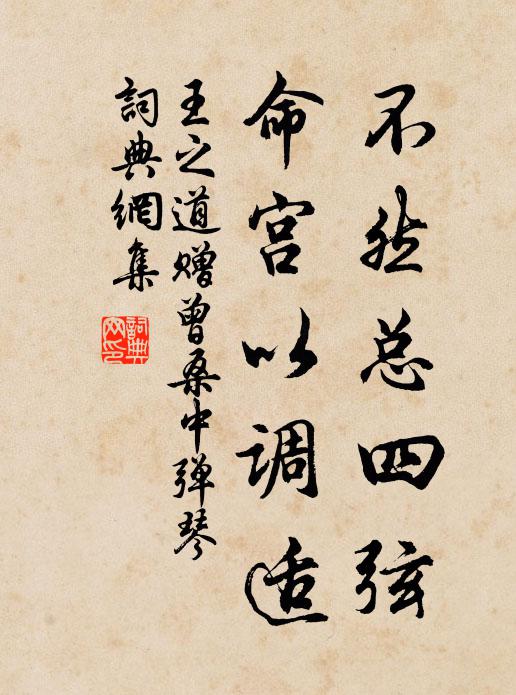 不然总四弦
命宫以调适
王之道赠曾桑中弹琴
詞典網集
詞典网印